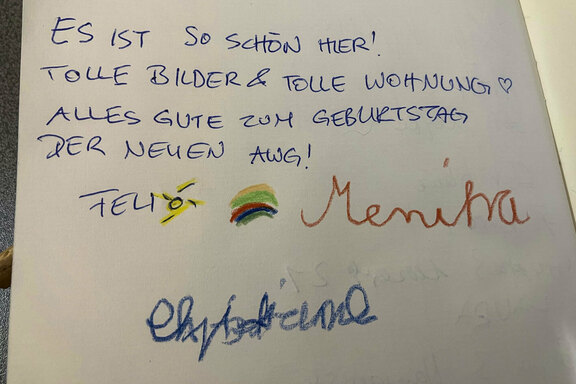 ES IST SO SCHÖN HIER!
TOLLE BILDER & TOLLE WOHNUNG ♡
ALLES GUTE ZUM GEBURTSTAG
DER NEUEN AWG!